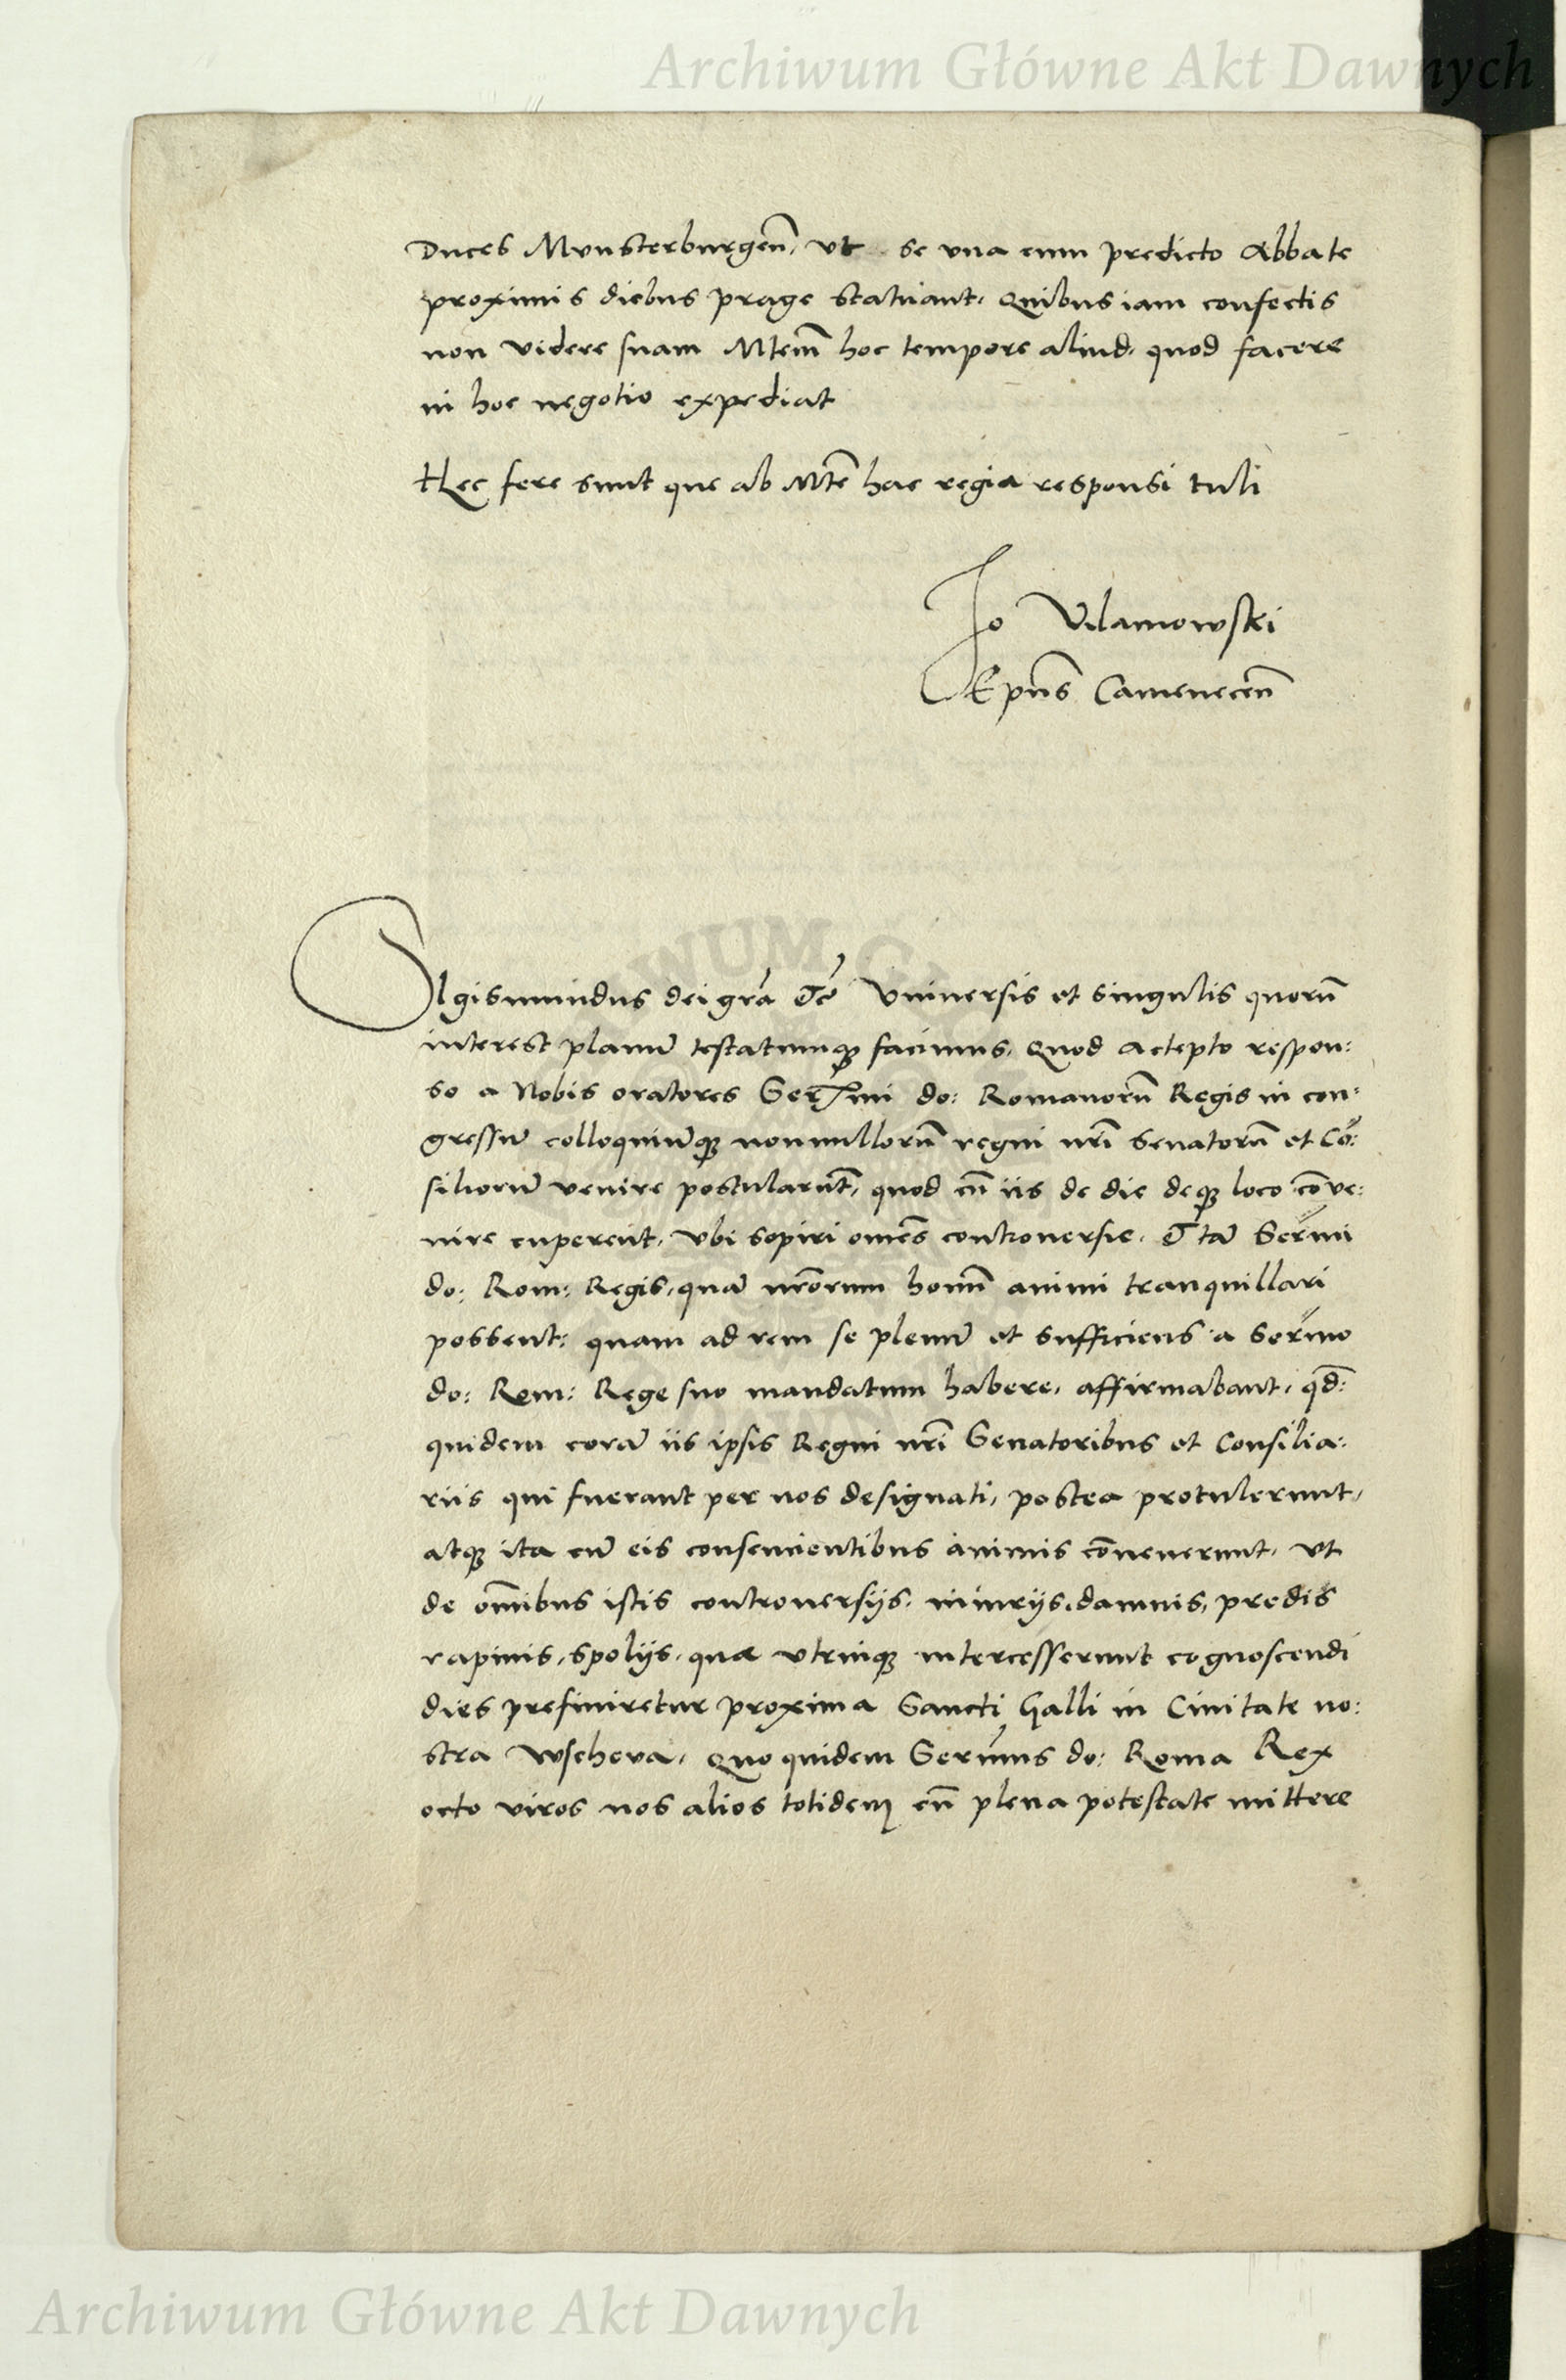 Archiwum Główne Akt Dawnych
Duces Munsterburgen̄, ut se una cum predicto Abbate
proximis diebus prage statuant. Quibus iam confectis
non videre suam Mtem̄ hoc tempore aliud, quod facere
in hoc negotio expediat
Hec fere sunt que ab Mte hac regia responsi tuli
Jo Vilamowski
Epūs Camenecen̄
SIgismundus dei grā &c̄ Universis et singulis quorū
interest planū testatumqꝫ facimus. Quod accepto respon:
so a Nobis oratores Serᵐⁱ do: Romanorū Regis in con:
gressū colloquiūqꝫ nonnullorū regni nr̄i Senatorū et Cō:
siliorū venire postularūt, quod cū iis de die deqꝫ loco cōve:
nire cuperent, ubi sopiri omēs controversie, & tā Serᵐⁱ
do: Rom: Regis, quā nr̄orum homīn animi tranquillari
possent: quam ad rem se plenū et sufficiens a Serᵐᵒ
do: Rom: Rege suo mandatum habere, affirmabant, qd̄:
quidem corā iis ipsis Regni nr̄i Senatoribus et Consilia:
riis qui fuerant per nos designati, postea protulerunt,
atqꝫ ita cū eis consencientibus animis cōvenerunt, ut
de om̄ibus istis controversijs, iniurijs, damnis, predis
rapinis, spolijs, quæ utrinqꝫ intercesserunt cognoscendi
dies prefiniretur proxima Sancti Galli in Civitate no:
stra Wschova, Quo quidem Serᵐᵘˢ do: Roma Rex
octo viros nos alios totidem cū plena potestate mittere
Archiwum Główne Akt Dawnych